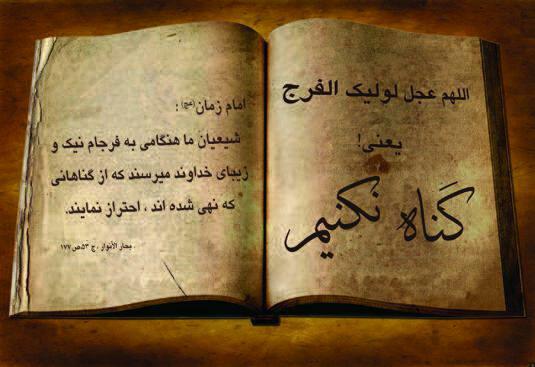 اللهم عجل لولیک الفرج
یعنی!
گناه نکنیم
امام زمان (عج) :
شیعیان ما هنگامی به فرجام نیک و
زیبای خداوند میرسند که از گناهانی
که نهی شده اند ، احتراز نمایند.
بحار الأنوار ، ج ۵۳ ص ۱۷۷